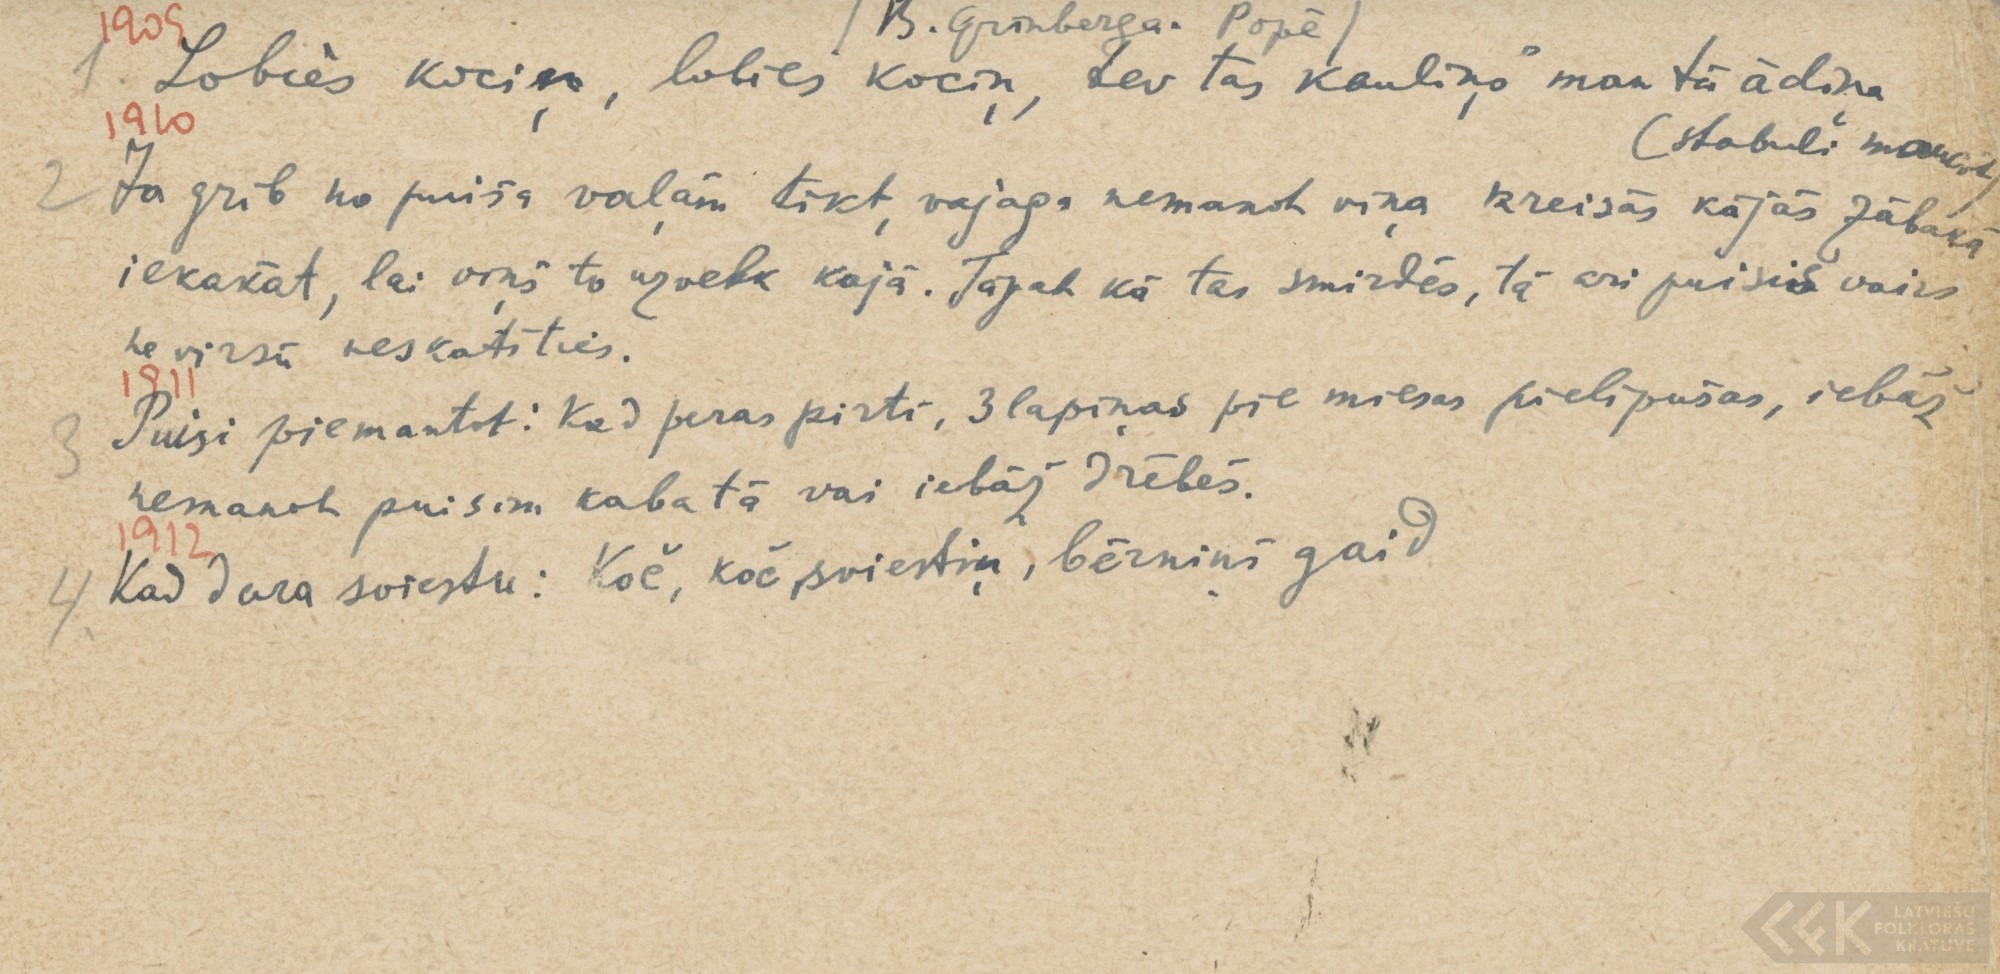 (B. Grīnberga. Popē)
1909
1. Lobies kociņ, lobies kociņ, tev tas kauliņš man tā ādiņa
(stabuli maucot)
1910
2 Ja grib no puiša vaļām tikt, vajaga nemanot viņa kreisās kājās zābakā
iekakāt, lai viņš to uzvelk kājā. Tāpat kā tas smirdēs, tā ari puisis vairs
ne virsū neskatīties.
1911
3 Puisi piemantot: Kad peras pirtī, 3 lapiņas pie miesas pielipušas, iebāž
nemanot puisim kabatā vai iebāž drēbēs.
1912
4. Kad dara sviestu: Koč, koč, sviestiņ, bērniņš gaid
LATVIEŠU
FOLKLORAS
KRĀTUVE